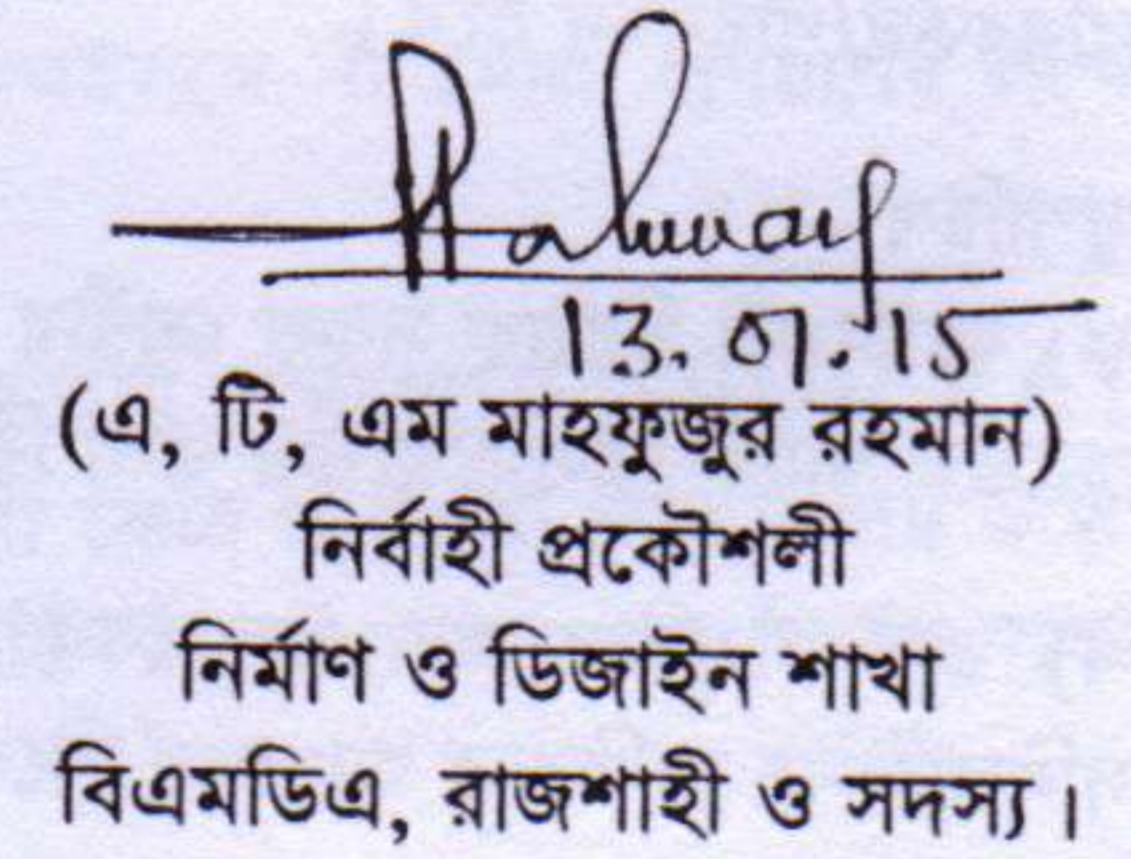 13.07.15
(এ, টি, এম মাহফুজুর রহমান)
নির্বাহী প্রকৌশলী
নির্মাণ ও ডিজাইন শাখা
বিএমডিএ, রাজশাহী ও সদস্য।